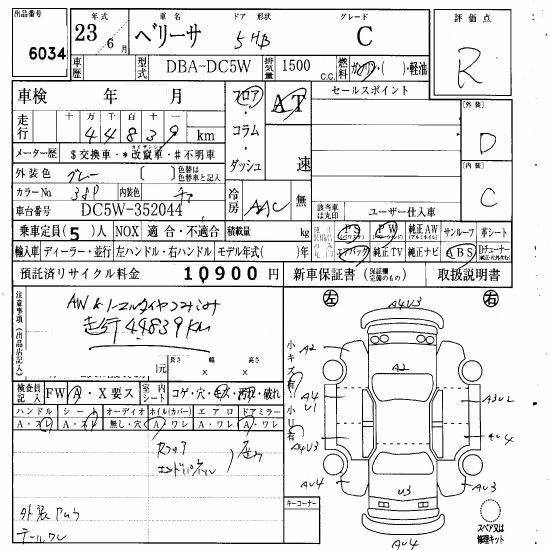 出品番号 6034
年式 23年 6月 車名 ベリーサ ドア 形状 5HB グレード C 評価点 R
車歴 型式 DBA-DC5W 排気量 1500 c.c. 燃料 ガソリン・( )・軽油
車検 年 月 フロア・コラム・ダッシュ AT 速 セールスポイント
走行 十万千百十一 44839 km
メーター歴 $交換車・*改竄車・#不明車
外装色 グレー ( ) 色替は色替車と記入
カラーNo. 38P 内装色
車台番号 DC5W-352044 冷房 AAC 無 該当車は丸印 ユーザー仕入車
[外装] D
[内装] C
乗車定員(5)人 NOX 適合・不適合 積載量 kg PS PW 純正AW サンルーフ 革シート
輸入車 ディーラー・並行 左ハンドル・右ハンドル モデル年式( )年 エアバッグ 純正TV 純正ナビ ABS
預託済リサイクル料金 10900円 新車保証書 取扱説明書
注意事項(出品店記入)
走行44839km
長さ 幅 高さ
検査員記入 FW A・X要ス 室内シート コゲ・穴・毛ス・汚れ・破れ
ハンドル シート オーディオ ホイル(カバー) エアロ ドアミラー
A・スレ A・スレ 無し・穴 A・ワレ A・ワレ A・ワレ
Rフロア
エンドパネル
外装
テールワレ
左 右
小キズ有
小U有
A4U3
A2
A2
A4
U1
A3U2
A4U3
AU4
AU4
AU3
U3
AU4
キーコーナー
スペア又は修理キット